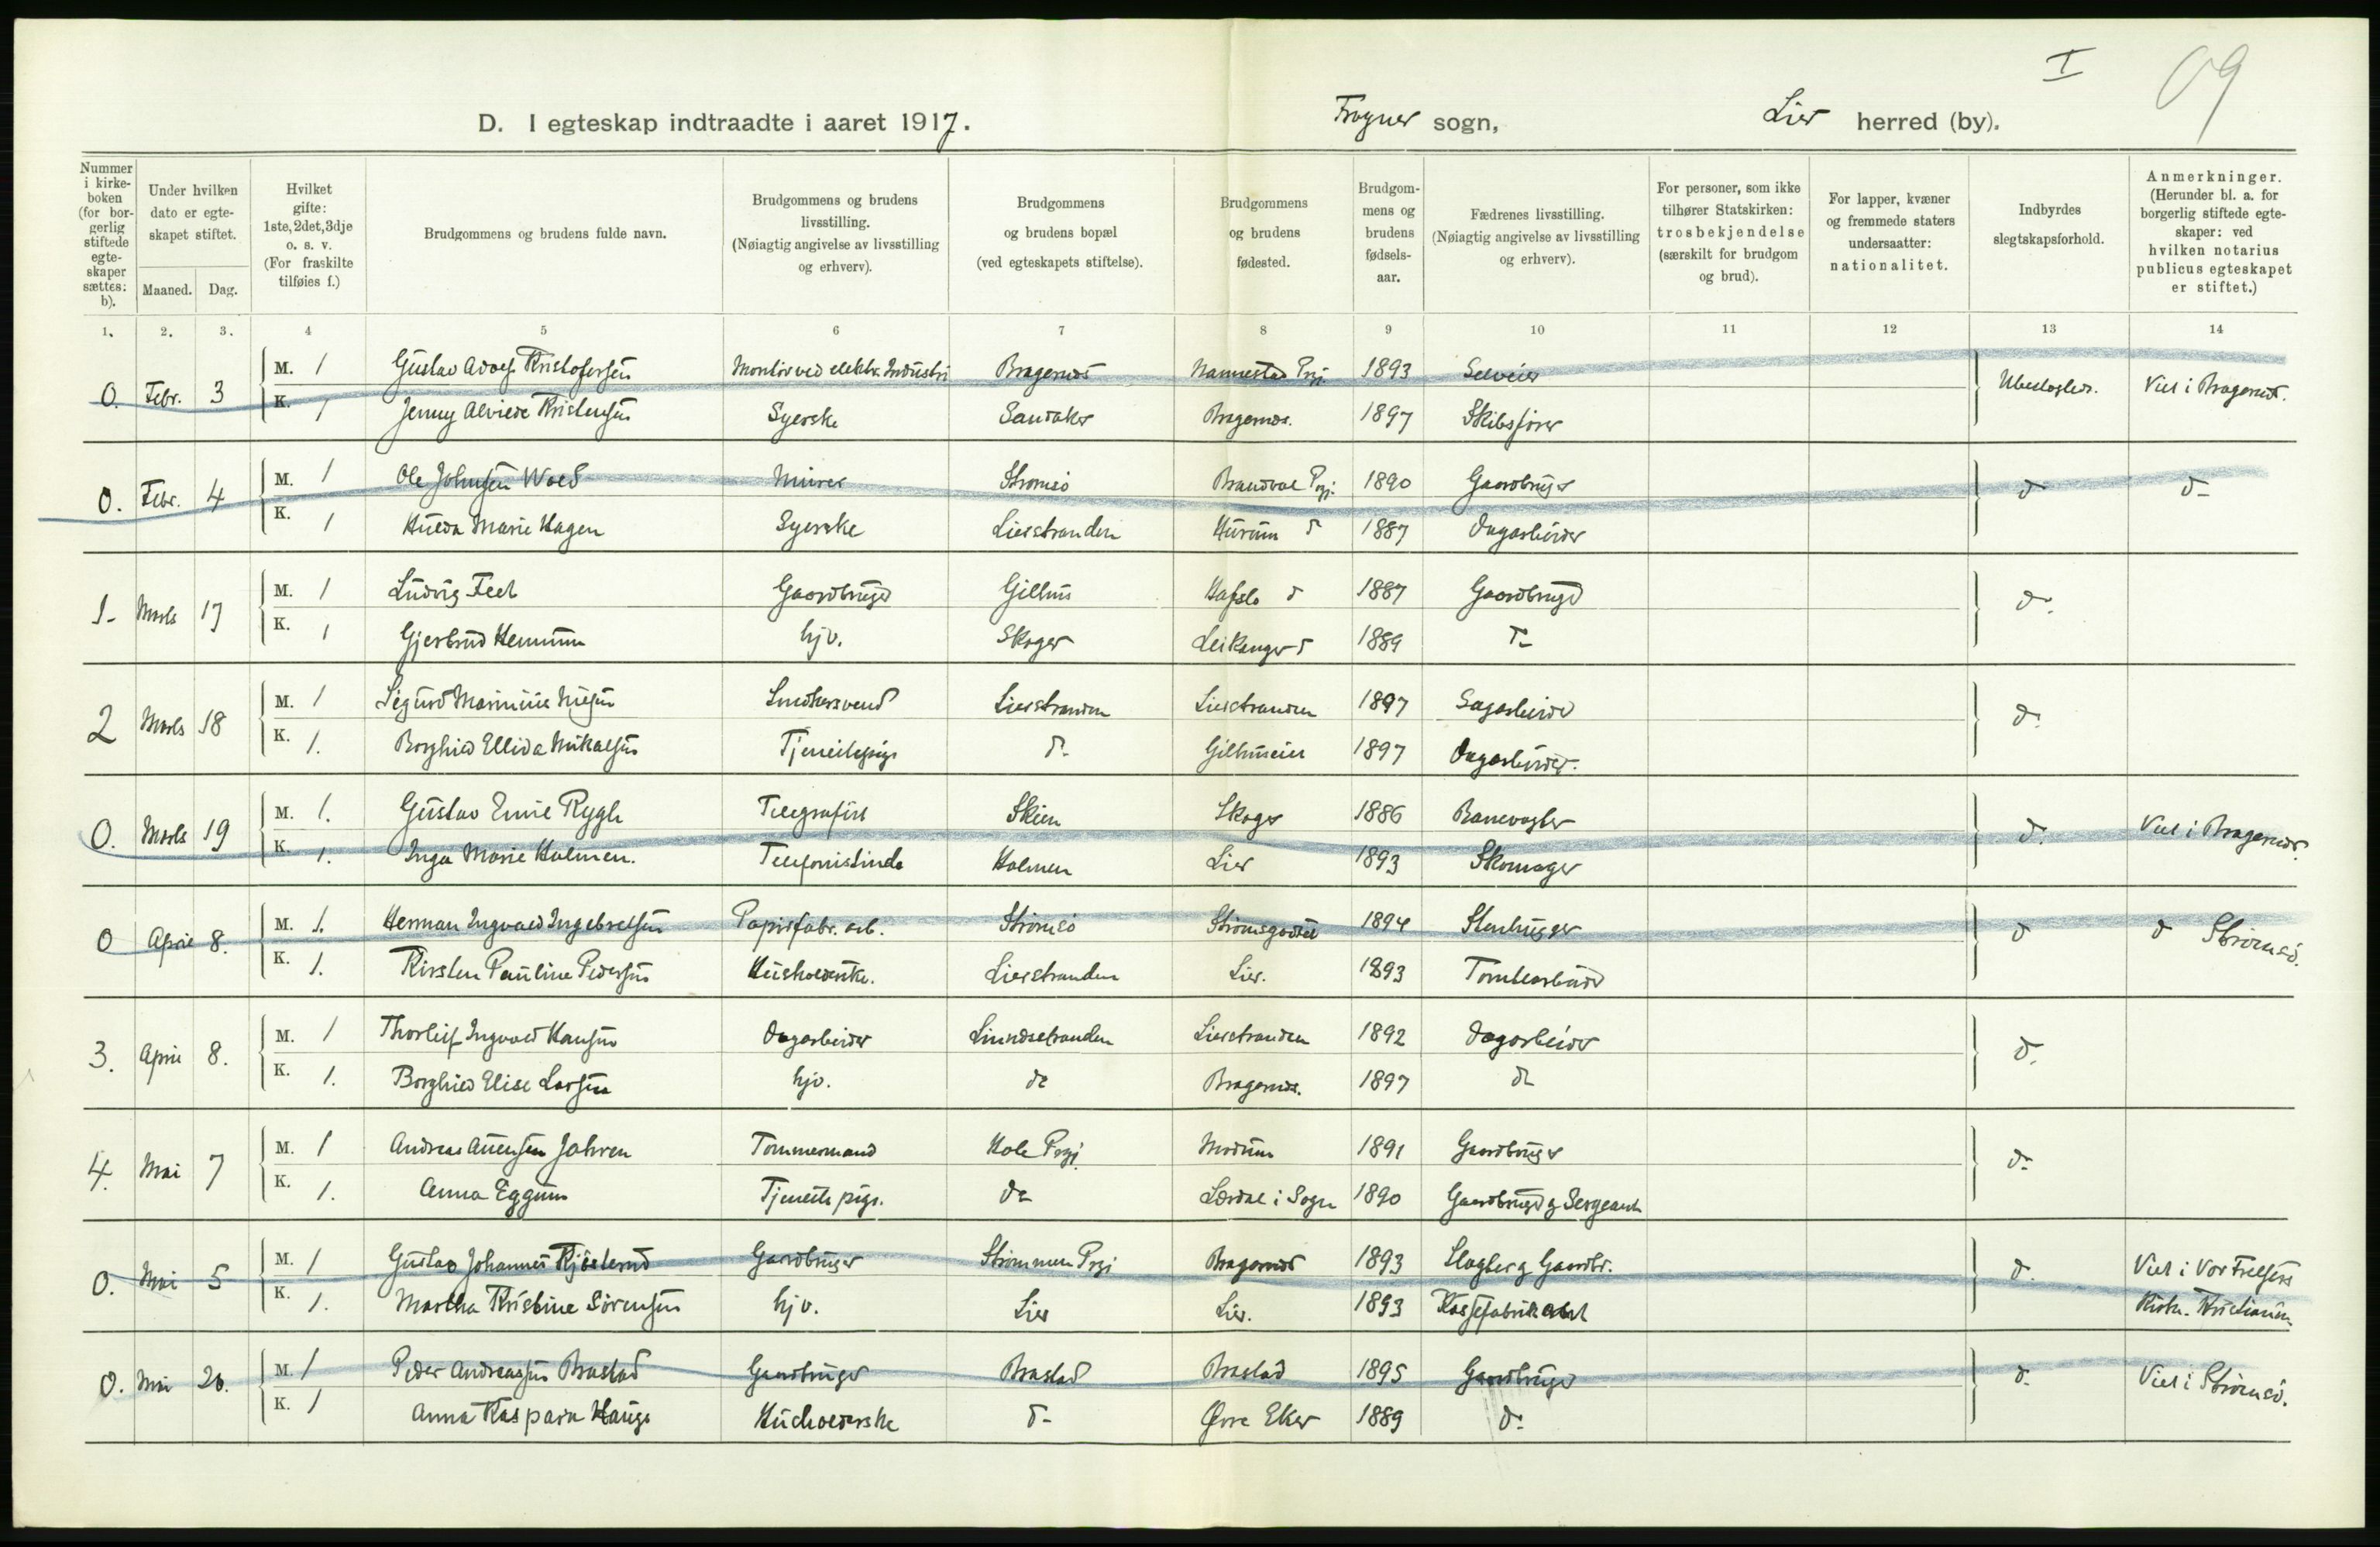 I 09
D. I egteskap indtraadte i aaret 1917. Frogner sogn, Lier herred (by).
Nummer i kirkeboken (for borgerlig stiftede egteskaper sættes: b).
Under hvilken dato er egteskapet stiftet.
Maaned. Dag.
Hvilket gifte: 1ste, 2det, 3dje o. s. v. (For fraskilte tilføies f.)
Brudgommens og brudens fulde navn.
Brudgommens og brudens livsstilling. (Nøiagtig angivelse av livsstilling og erhverv).
Brudgommens og brudens bopæl (ved egteskapets stiftelse).
Brudgommens og brudens fødested.
Brudgommens og brudens fødselsaar.
Fædrenes livsstilling. (Nøiagtig angivelse av livsstilling og erhverv).
For personer, som ikke tilhører Statskirken: trosbekjendelse (særskilt for brudgom og brud).
For lapper, kvæner og fremmede staters undersaatter: nationalitet.
Indbyrdes slegtskapsforhold.
Anmerkninger. (Herunder bl. a. for borgerlig stiftede egteskaper: ved hvilken notarius publicus egteskapet er stiftet.)
1. 2. 3. 4 5 6 7 8 9 10 11 12 13 14
0. Febr. 3 M. 1 Gustav Adolf Kristofersen Montör ved elektr. Industri Bragernes Nannestad Prgj. 1893 Selveier Ubeslegted. Viet i Bragernes.
K. 1 Jenny Alvilde Kristensen Syerske Sandaker Bragernes. 1897 Skibsförer
0. Febr. 4 M. 1 Ole Johnsen Wold Murer Strömsö Brandval Prgj. 1890 Gaardbruger d d-
K. 1 Hulda Marie Hagen Syerske Lierstranden Hurum d 1887 Dagarbeider
1- Marts 17 M. 1 Ludvig Feet Gaardbruger Gilhus Hafslo d 1887 Gaardbruger d.
K. 1 Gjertrud Hennum hjv. Skoger Leikanger d 1889 d-
2 Marts 18 M. 1 Sigurd Marinius Nilsen Smedsvend Lierstranden Lierstranden 1897 Sagarbeider d.
K. 1. Borghild Ellida Mikalsen Tjenestepige d- Gilhuseier 1897 Dagarbeider.
0. Marts 19 M. 1. Gustav Emil Rygh Telegrafist Skien Skoger 1886 Banevogter d. Viet i Bragernes.
K. 1. Inga Marie Holmen. Telefonistinde Holmen Lier 1893 Skomager
0 April 8. M. 1. Herman Ingvald Ingebretsen Papirfabr. arb. Strömsö Strömsgodset 1894 Stenhugger d d Strömsö.
K. 1. Kirsten Pauline Pedersen Husholderske. Lierstranden Lier. 1893 Tomtearbeider
3. April 8. M. 1 Thorleif Ingvald Hansen Dagarbeider Lierstranden 1892 Dagarbeider d.
K. 1. Borghild Elise Larsen hjv. do Bragernes. 1897 do
4. Mai 7 M. 1 Andreas Jahren Tømmermand Hole Prgj. Modum 1891 Gaardbruger d-
K. 1. Anna Eggum Tjeneste pige. do Lærdal i Sogn 1890 Gaardbruger og Sergeant
0. Mai 5 M. 1 Gustav Johannes Kjösterud Gaardbruger Strömmen Prgj 1893 Slagter og Gaardbr. d. Viet i Vor Frelsers
K. 1. Martha Kristine Sörensen hjv. Lier Lier. 1893 Kassefabrikant Kirke. Kristiania
0. Mai 20. M. 1 Peder Andreassen Brastad Gaardbruger Brastad Brastad 1895 Gaardbruger d. Viet i Strömsö.
K. 1 Anna Kaspara Hauge Husholderske d- Øvre Eker 1889 d.